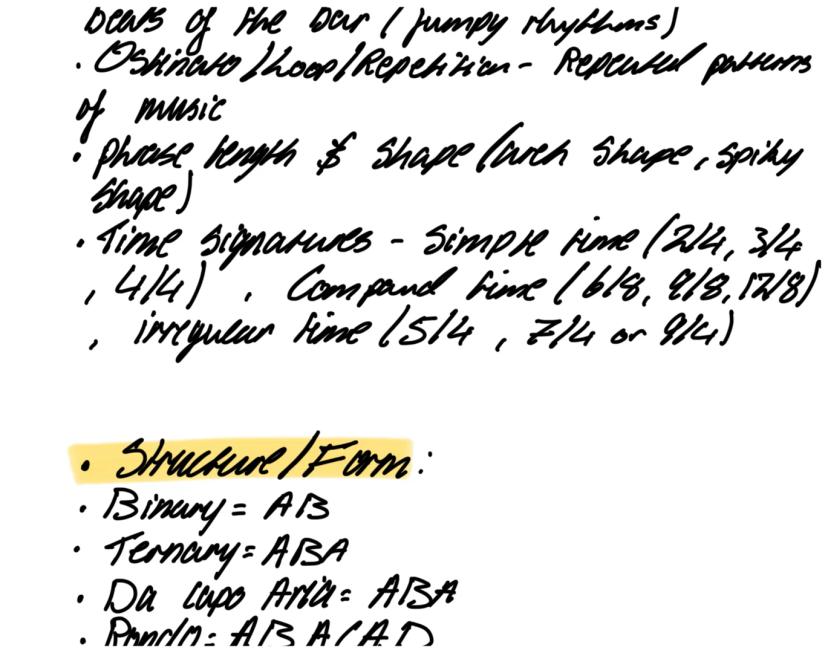 beats of the bar (jumpy rhythms)
• Ostinato/Loop/Repetition - Repeated patterns
of music
• phrase length & shape (arch shape, spiky
shape)
• Time signatures - Simple time (2/4, 3/4
, 4/4) , Compound time (6/8, 9/8, 12/8)
, irregular time (5/4 , 7/4 or 9/4)
• Structure/Form:
• Binary = AB
• Ternary = ABA
• Da capo Aria = ABA
• Rondo = ABACAD